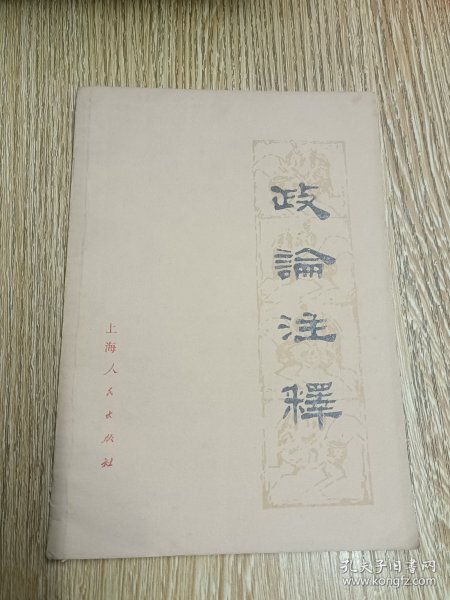 政論注釋
上海人民出版社
孔夫子旧书网
www.kongfz.com